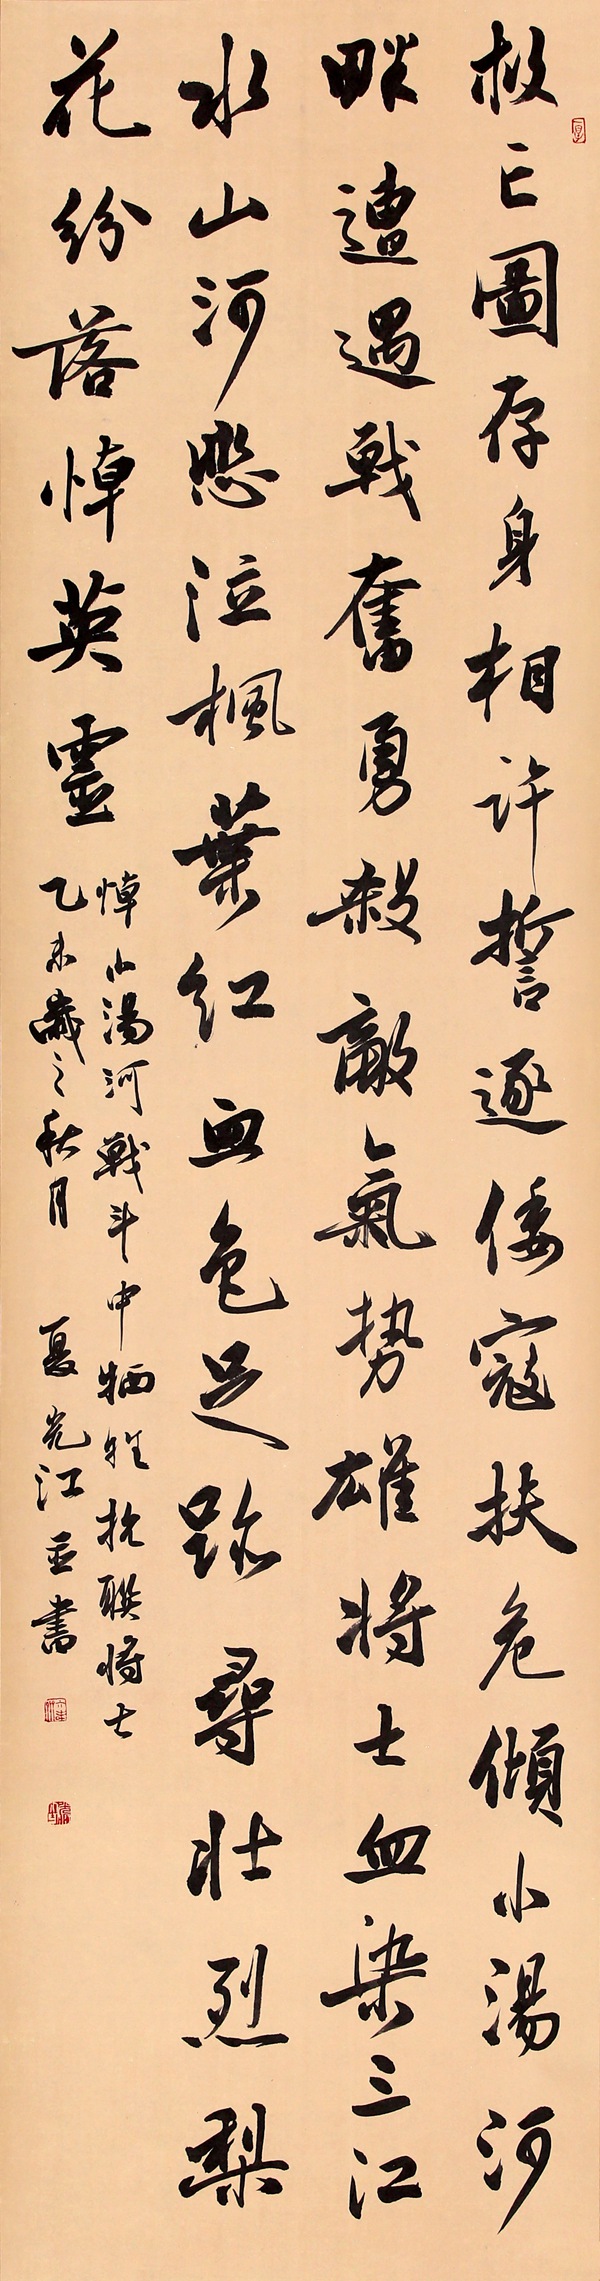 救亡圖存身相許誓逐倭寇扶危傾小湯河
畔遭遇戰奮勇殺敵氣勢雄將士血染三江
水山河悲泣楓葉紅血色足跡尋壮烈梨
花紛落悼英靈
悼小湯河戰斗中牺牲抗聯將士
乙未歲之秋月 夏光江並書